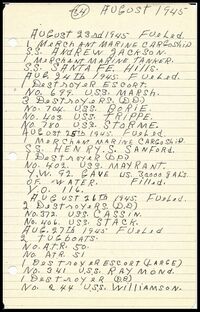 64 AUGUST 1945
AUGUST 23rd 1945 FUELED.
1 MERCHANT MARINE CARGO SHIP
S.S. ANDREW JACKSON.
1 MERCHANT MARINE TANKER.
S.S. SANTA FE HILLS.
AUG. 24th 1945. FUELED.
1 DESTROYER ESCORT.
No. 699. U.S.S. MARSH.
3 DESTROYERS (DD)
No. 704. U.S.S. BORIE.
No. 403. U.S.S. TRIPPE.
No. 780. U.S.S. STORMES.
AUGUST 25th 1945. FUELED.
1 MERCHANT MARINE CARGO SHIP.
S.S. HENRY S. SANFORD.
1 DESTROYER (DD)
No. 402. U.S.S. MAYRANT.
Y.W. 92 GAVE US. 30000 GALS.
OF WATER. FILLED.
Y.O. 116.
AUGUST 26th 1945 FUELED
2 DESTROYERS (DD)
No. 372. U.S.S. CASSIN.
No. 406. U.S.S. STACK.
AUG. 27th 1945 FUELED
2 TUGBOATS.
No. ATR. 50.
No. ATR. 51
1 DESTROYER ESCORT (LARGE)
No. 341 U.S.S. RAYMOND.
1 DESTROYER (DD)
No. 244 U.S.S. WILLIAMSON.